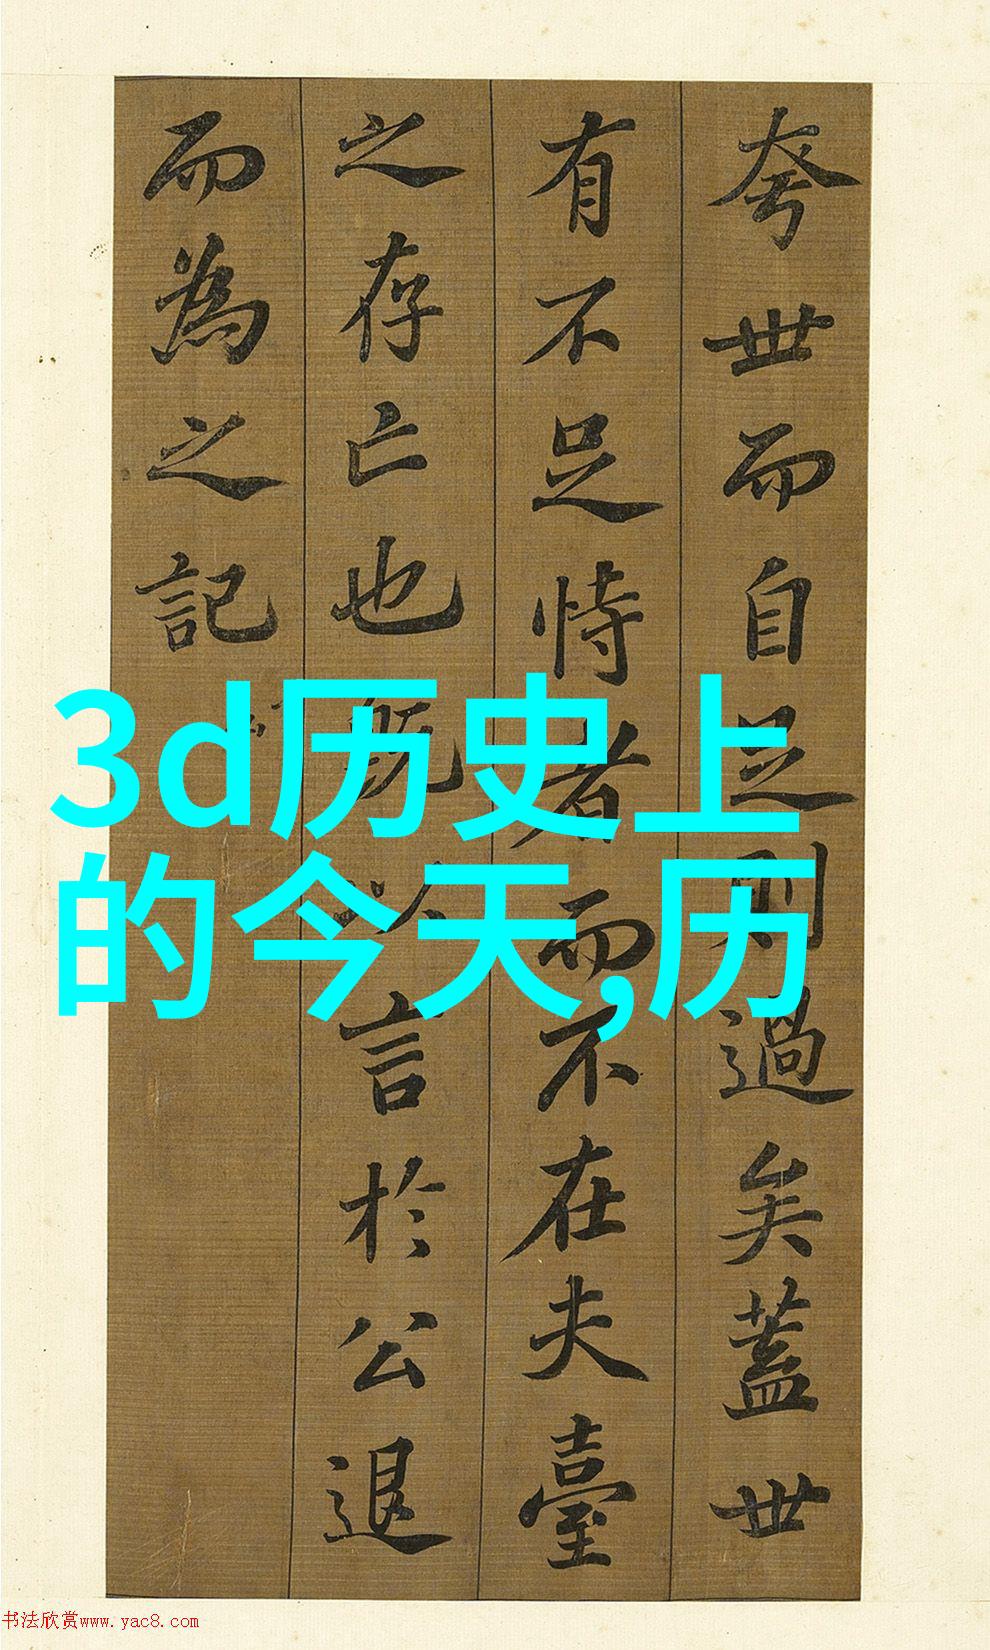 夸世而自足則過矣蓋世
有不足恃者而不在夫臺
之存亡也既以言於公退
而為之記
3d历史上
的今天,历
书法欣赏www.yac8.com